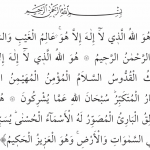 بِسْمِ اللَّهِ الرَّحْمَنِ الرَّحِيمِ
هُوَ اللَّهُ الَّذِي لَا إِلَهَ إِلَّا هُوَ عَالِمُ الْغَيْبِ
الرَّحْمَنُ الرَّحِيمُ ۞ هُوَ اللَّهُ الَّذِي لَا إِلَهَ إِلَّا هُوَ
الْقُدُّوسُ السَّلَامُ الْمُؤْمِنُ الْمُهَيْمِنُ
الْمُتَكَبِّرُ سُبْحَانَ اللَّهِ عَمَّا يُشْرِكُونَ ۞ هُوَ
الْبَارِئُ الْمُصَوِّرُ لَهُ الْأَسْمَاءُ الْحُسْنَى يُسَبِّحُ
السَّمَوَاتِ وَالْأَرْضِ وَهُوَ الْعَزِيزُ الْحَكِيمُ﴾